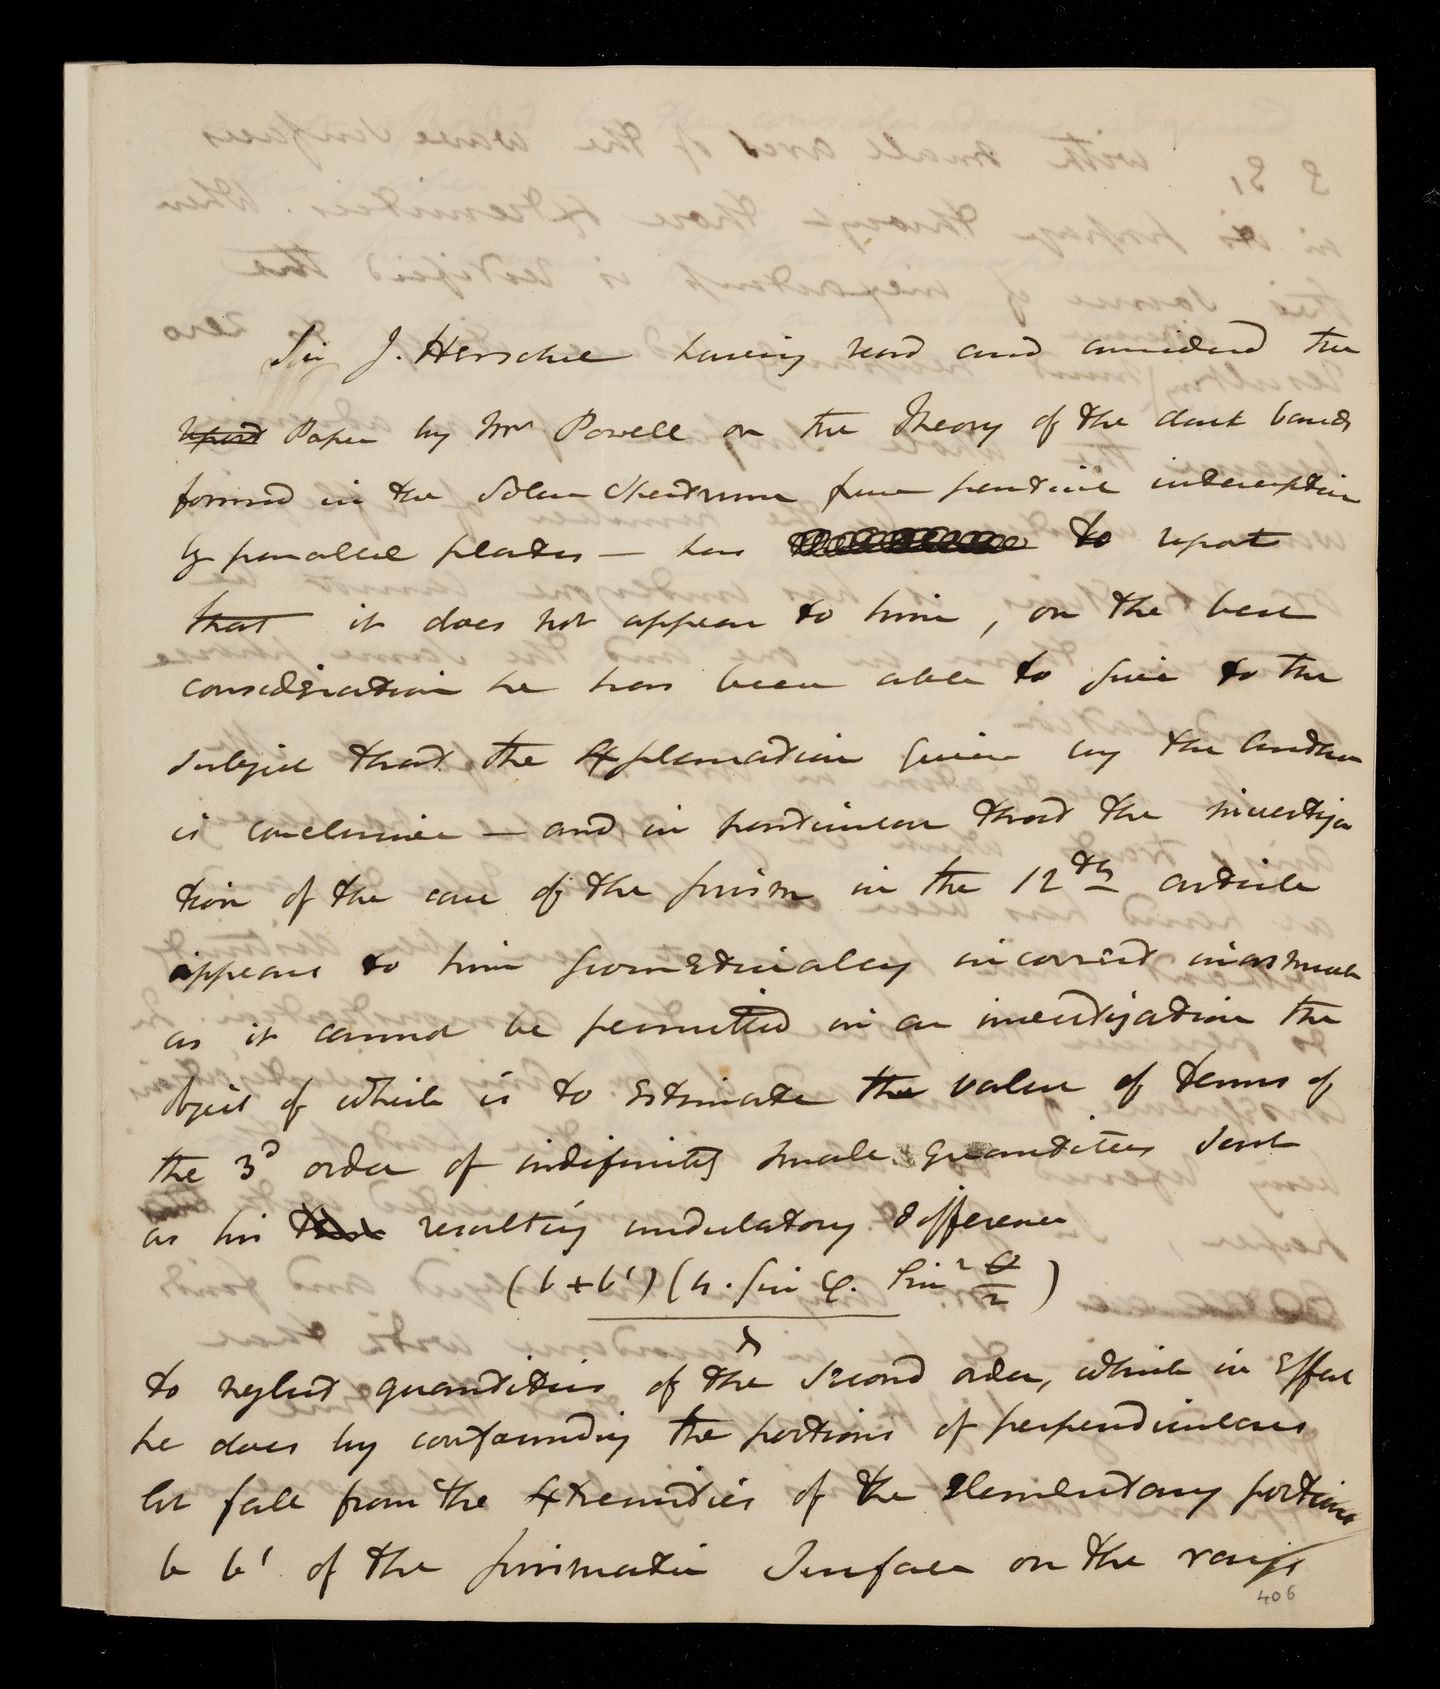 Sir J. Herschel having read and considered the
report Paper by Mr Powell on the Theory of the dark bands
formed in the Solar Spectrum from partial interception
by parallel plates — has to report
that it does not appear to him, on the best
consideration he has been able to give to the
subject that the Explanation given by the Author
is conclusive — and in particular that the investiga
tion of the case of the prism in the 12th article
appears to him geometrically incorrect inasmuch
as it cannot be permitted in an investigation the
object of which is to Estimate the value of terms of
the 3d order of indefinitely small quantities such
as his resulting undulatory difference
(b+b')(h. Sin φ. Sin² θ/2)
to neglect quantities of the Second order, which in Effect
he does by confounding the portions of perpendiculars
let fall from the Extremities of the Elementary portions
b b' of the prismatic Surface on the rays
406